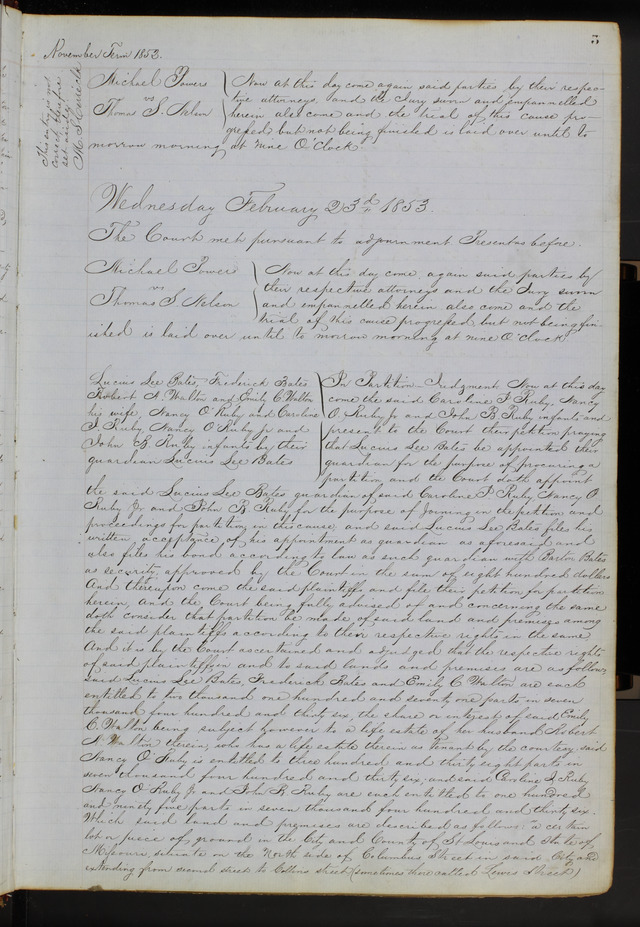 5
November Term 1853.
Michael Powers
vs
Thomas S. Nelson
Now at this day come again said parties, by their respec-
tive attorneys, and the Jury sworn and empannelled
herein also come and the trial of this cause pro-
gressed but not being finished is laid over until to
morrow morning at nine O'Clock
Wednesday February 23d 1853.
The Court met pursuant to adjournment Present as before.
Michael Powers
vs
Thomas S. Nelson
Now at this day come again said parties by
their respective attorneys and the Jury sworn
and empannelled herein also come and the
trial of this cause progressed but not being fin-
ished is laid over until to morrow morning at nine O'Clock
Lucius Lee Bates, Frederick Bates
Robert A. Walton and Emily C Walton
his wife, Nancy O Ruby and Caroline
J. Ruby, Nancy O Ruby Jr and
John B. Ruby infants by their
guardian Lucius Lee Bates
In Partition Judgment Now at this day
come the said Caroline J Ruby, Nancy
O. Ruby Jr and John B. Ruby infants and
present to the Court their petition praying
that Lucius Lee Bates be appointed their
guardian for the purpose of procuring a
partition, and the Court doth appoint
the said Lucius Lee Bates guardian of said Caroline J Ruby Nancy O
Ruby Jr and John B. Ruby for the purpose of Joining in the petition and
proceedings for partition in this cause, and said Lucius Lee Bates files his
written acceptance of his appointment as guardian as aforesaid and
also files his bond according to law as such guardian with Barton Bates
as security approved by the Court in the sum of eight hundred dollars
And thereupon come the said plaintiffs and file their petition for partition
herein, and the Court being fully advised of and concerning the same
doth consider that partition be made of said land and premises among
the said plaintiffs according to their respective rights in the same
And it is by the Court ascertained and adjudged that the respective rights
of said plaintiffs in and to said lands and premises are as follows
Said Lucius Lee Bates, Frederick Bates and Emily C Walton are each
entitled to two thousand one hundred and seventy one parts in seven
thousand four hundred and thirty six, the share or interest of said Emily
C. Walton being subject however to a life estate of her husband Robert
A. Walton therein, who has a life estate therein as tenant by the courtesy, said
Nancy O Ruby is entitled to three hundred and thirty eight parts in
seven thousand four hundred and thirty six, and said Caroline J. Ruby
Nancy O Ruby Jr and John B Ruby are each entitled to one hundred
and ninety five parts in seven thousand four hundred and thirty six.
Which said land and premises are described as follows: "a certain
lot or piece of ground in the City and County of St Louis and State of
Missouri, situate on the North side of Columbus Street in said City and
extending from second street to Collins Street (sometimes there called Lewis Street)